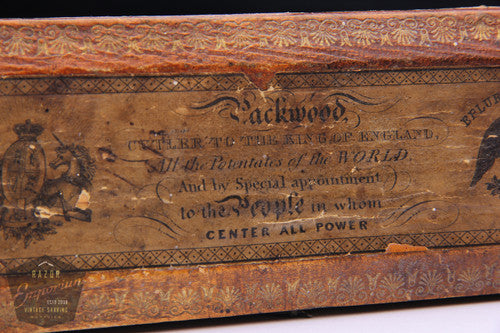 Packwood,
CUTLER TO THE KING OF ENGLAND,
All the Potentates of the WORLD,
And by Special appointment
to the People in whom
CENTER ALL POWER
E PLU
RAZOR
Emporium
VINTAGE SHAVING